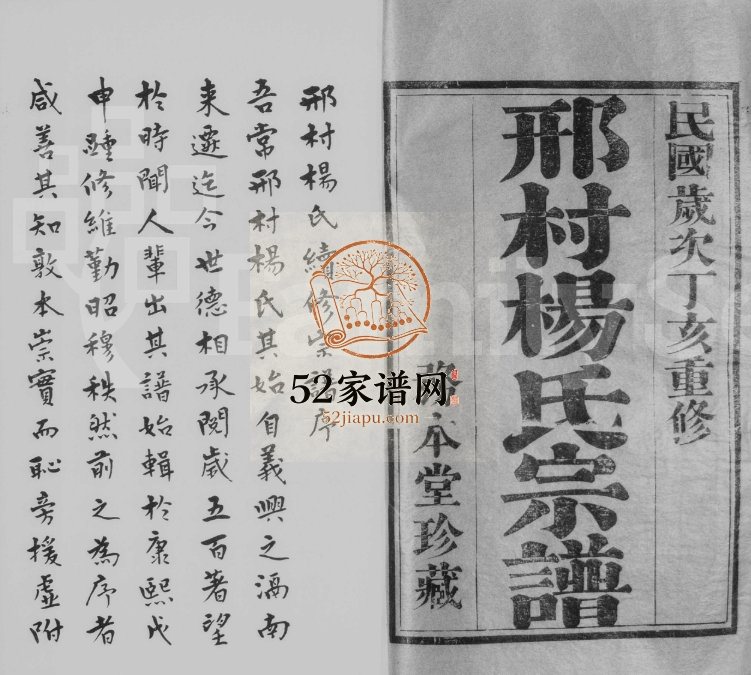 民國歲次丁亥重修
邢村楊氏宗譜
敦本堂珍藏
邢村楊氏續修宗譜序
吾常邢村楊氏其始自義興之滆南
来遷迄今世德相承閱歲五百著望
於時聞人輩出其譜始輯於康熙戊
申踵修維勤昭穆秩然前之為序者
咸善其知敦本崇實而恥旁援虛附
52家谱网
52jiapu.com